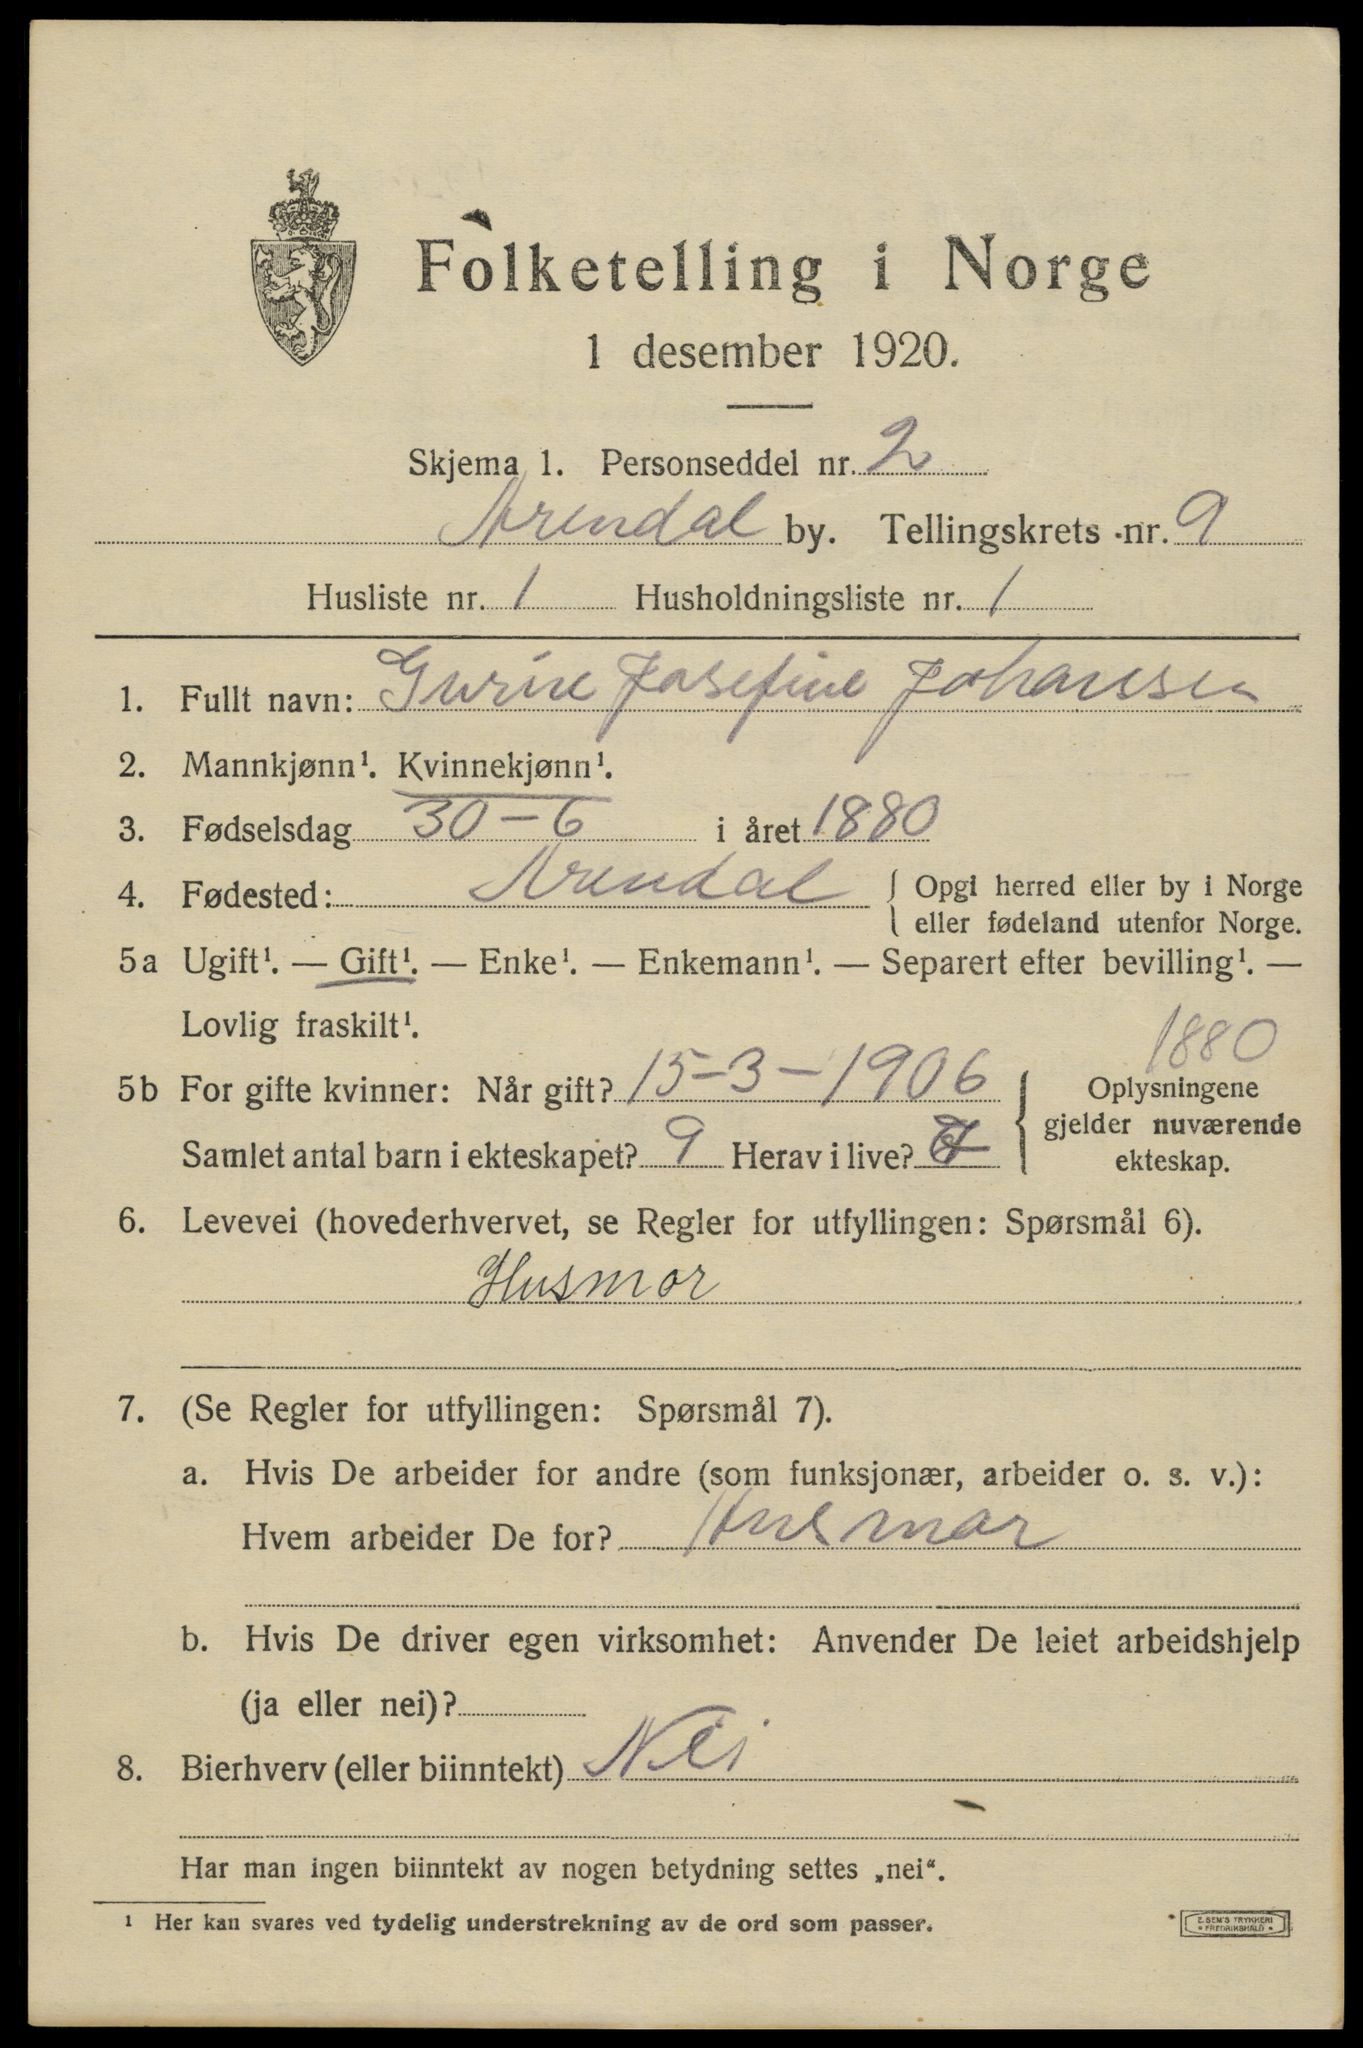 Folketelling i Norge
1 desember 1920.
Skjema 1. Personseddel nr. 2
Arendal by. Tellingskrets nr. 9
Husliste nr. 1 Husholdningsliste nr. 1
1. Fullt navn: Gurine Josefine Johanssen
2. Mannkjønn¹. Kvinnekjønn¹.
3. Fødselsdag 30-6 i året 1880
4. Fødested: Arendal { Opgi herred eller by i Norge
eller fødeland utenfor Norge.
5a Ugift¹. — Gift¹. — Enke¹. — Enkemann¹. — Separert efter bevilling¹. —
Lovlig fraskilt¹.
1880
5b For gifte kvinner: Når gift? 15-3-1906
Samlet antal barn i ekteskapet? 9 Herav i live?
Oplysningene
gjelder nuværende
ekteskap.
6. Levevei (hovederhvervet, se Regler for utfyllingen: Spørsmål 6).
Husmor
7. (Se Regler for utfyllingen: Spørsmål 7).
a. Hvis De arbeider for andre (som funksjonær, arbeider o. s. v.):
Hvem arbeider De for? Husmor
b. Hvis De driver egen virksomhet: Anvender De leiet arbeidshjelp
(ja eller nei)?
8. Bierhverv (eller biinntekt) Nei
Har man ingen biinntekt av nogen betydning settes „nei“.
¹ Her kan svares ved tydelig understrekning av de ord som passer.
E. SEM'S TRYKKERI
• FREDRIKSHALD •